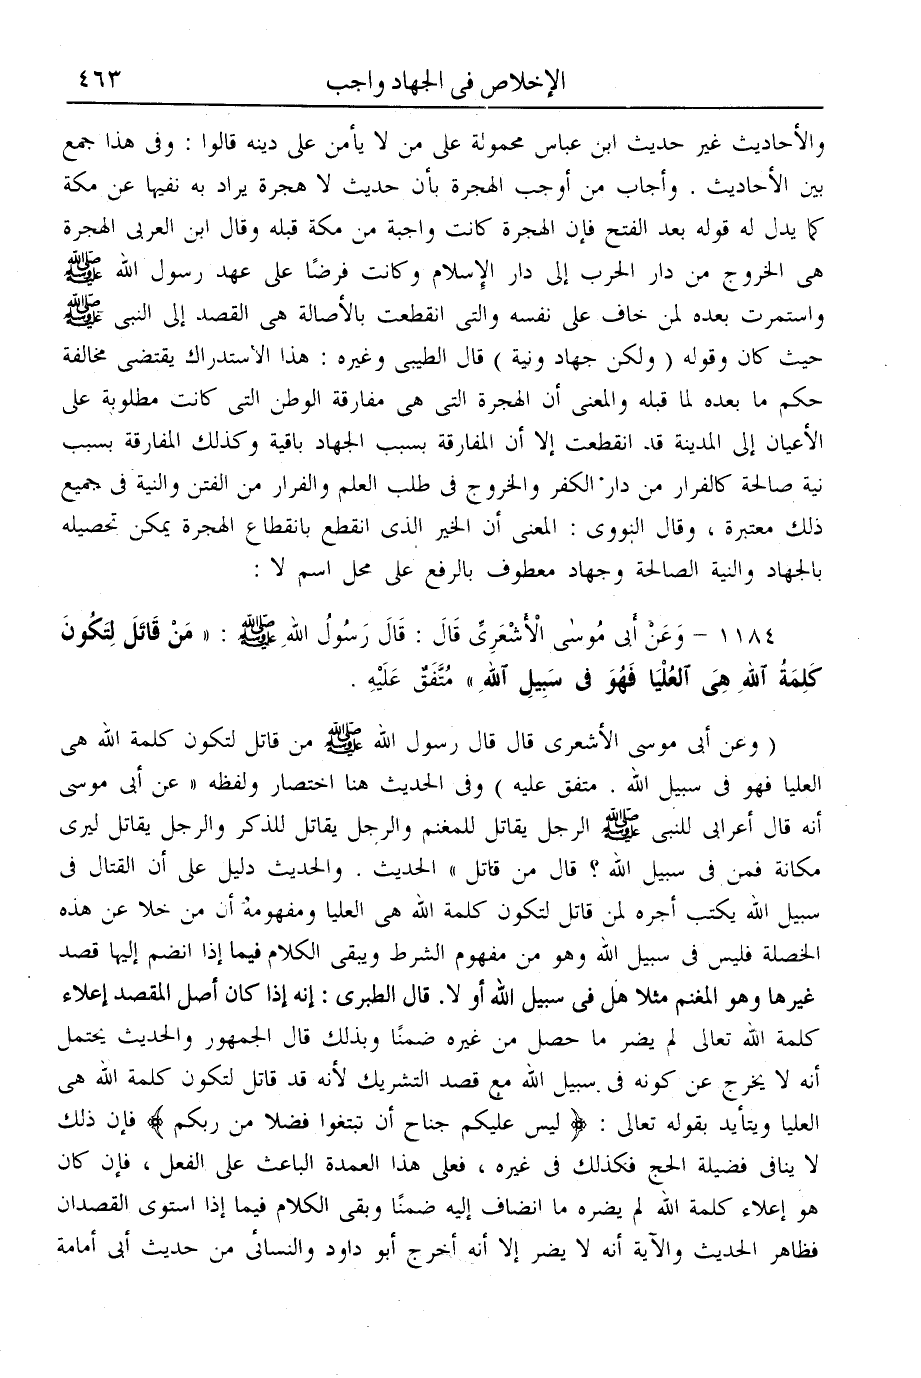 الإخلاص فى الجهاد واجب ٤٦٣
والأحاديث غير حديث ابن عباس محمولة على من لا يأمن على دينه قالوا : وفى هذا جمع
بين الأحاديث . وأجاب من أوجب الهجرة بأن حديث لا هجرة يراد به نفيها عن مكة
كما يدل له قوله بعد الفتح فإن الهجرة كانت واجبة من مكة قبله وقال ابن العربى الهجرة
هى الخروج من دار الحرب إلى دار الإسلام وكانت فرضًا على عهد رسول الله ﷺ
واستمرت بعده لمن خاف على نفسه والتى انقطعت بالأصالة هى القصد إلى النبى ﷺ
حيث كان وقوله ( ولكن جهاد ونية ) قال الطيبى وغيره : هذا الاستدراك يقتضى مخالفة
حكم ما بعده لما قبله والمعنى أن الهجرة التى هى مفارقة الوطن التى كانت مطلوبة على
الأعيان إلى المدينة قد انقطعت إلا أن المفارقة بسبب الجهاد باقية وكذلك المفارقة بسبب
نية صالحة كالفرار من دار الكفر والخروج فى طلب العلم والفرار من الفتن والنية فى جميع
ذلك معتبرة ، وقال النووى : المعنى أن الخير الذى انقطع بانقطاع الهجرة يمكن تحصيله
بالجهاد والنية الصالحة وجهاد معطوف بالرفع على محل اسم لا :
١١٨٤ – وَعَنْ أَبى مُوسٰى الْأَشْعَرِىِّ قَالَ : قَالَ رَسُولُ اللهِ ﷺ : « مَنْ قَاتَلَ لِتَكُونَ
كَلِمَةُ ٱللهِ هِىَ ٱلعُلْيَا فَهُوَ فى سَبِيلِ ٱللهِ » مُتَّفَقٌ عَلَيْهِ .
( وعن أبى موسى الأشعرى قال قال رسول الله ﷺ من قاتل لتكون كلمة الله هى
العليا فهو فى سبيل الله . متفق عليه ) وفى الحديث هنا اختصار ولفظه « عن أبى موسى
أنه قال أعرابى للنبى ﷺ الرجل يقاتل للمغنم والرجل يقاتل للذكر والرجل يقاتل ليرى
مكانة فمن فى سبيل الله ؟ قال من قاتل » الحديث . والحديث دليل على أن القتال فى
سبيل الله يكتب أجره لمن قاتل لتكون كلمة الله هى العليا ومفهومه أن من خلا عن هذه
الخصلة فليس فى سبيل الله وهو من مفهوم الشرط ويبقى الكلام فيما إذا انضم إليها قصد
غيرها وهو المغنم مثلا هل فى سبيل الله أو لا. قال الطبرى : إنه إذا كان أصل المقصد إعلاء
كلمة الله تعالى لم يضر ما حصل من غيره ضمنًا وبذلك قال الجمهور والحديث يحتمل
أنه لا يخرج عن كونه فى سبيل الله مع قصد التشريك لأنه قد قاتل لتكون كلمة الله هى
العليا ويتأيد بقوله تعالى : ﴿ ليس عليكم جناح أن تبتغوا فضلا من ربكم ﴾ فإن ذلك
لا ينافى فضيلة الحج فكذلك فى غيره ، فعلى هذا العمدة الباعث على الفعل ، فإن كان
هو إعلاء كلمة الله لم يضره ما انضاف إليه ضمنًا وبقى الكلام فيما إذا استوى القصدان
فظاهر الحديث والآية أنه لا يضر إلا أنه أخرج أبو داود والنسائى من حديث أبى أمامة